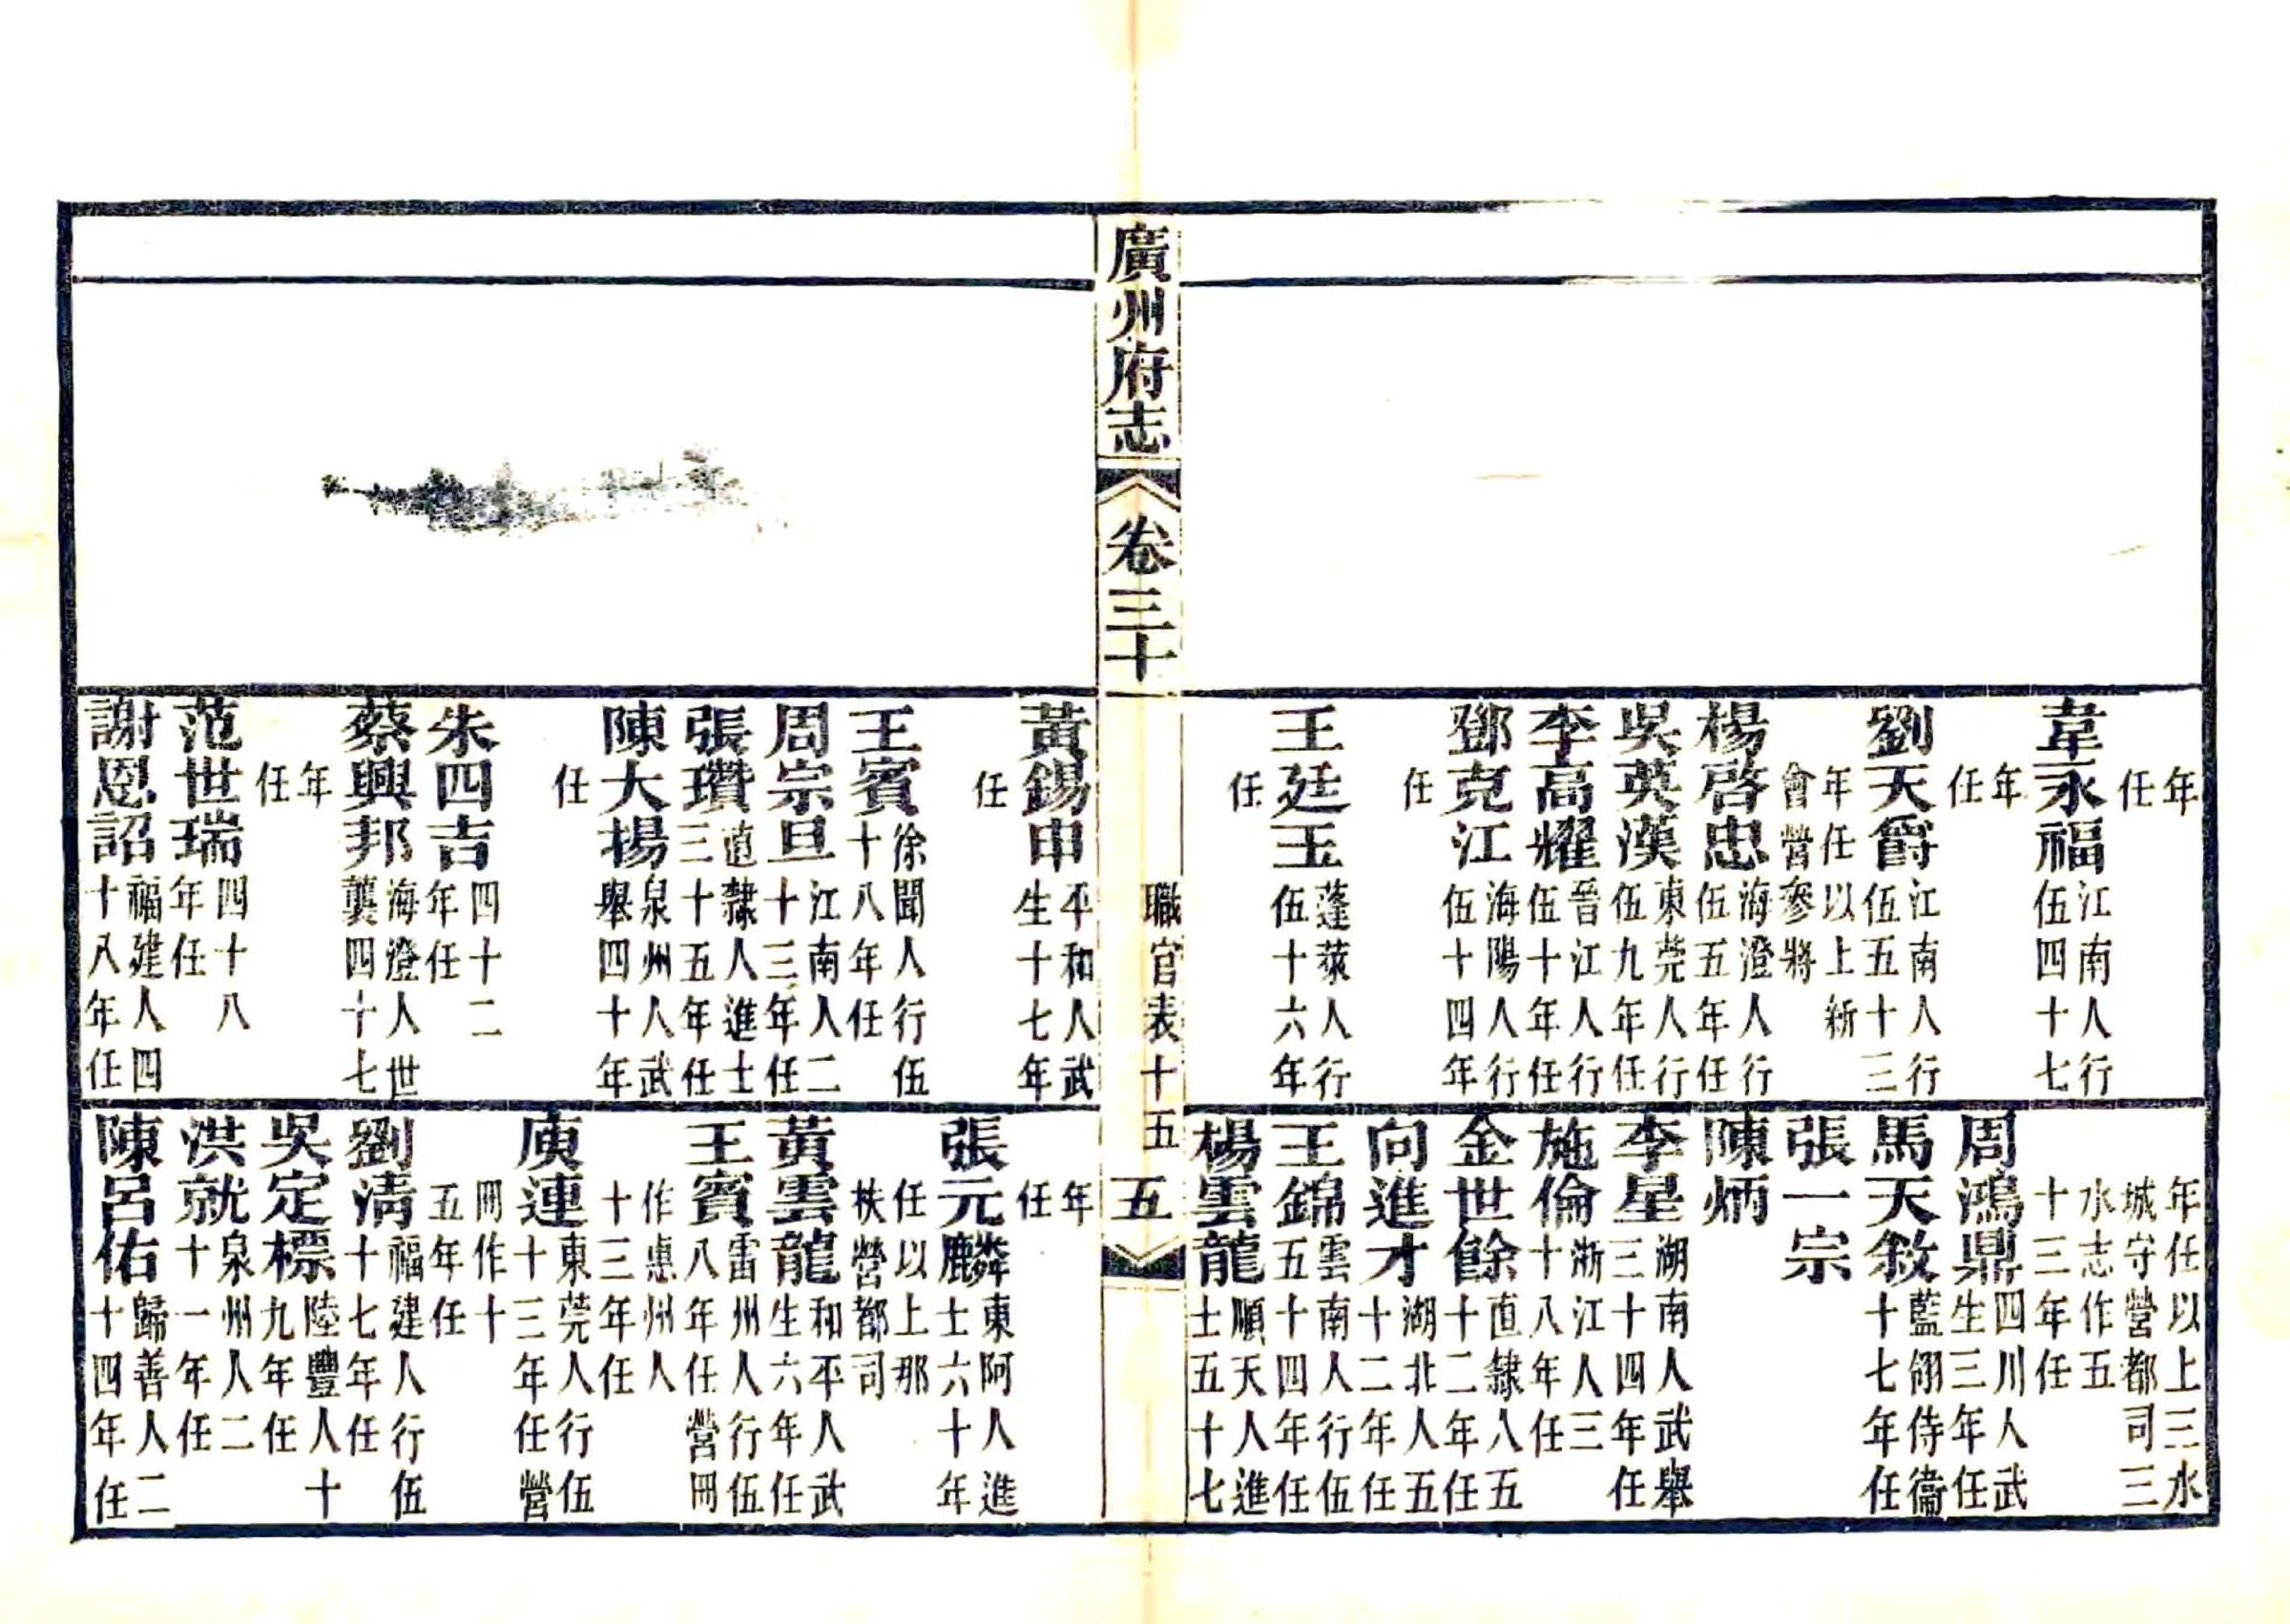 年任
韋永福江南人行伍四十七
年任
劉天爵江南人行伍五十三
年任以上新會營參將
楊啓忠海澄人行伍五年任
吳英漢東莞人行伍九年任
李高耀晉江人行伍十年任
鄧克江海陽人行伍十四年
任
王廷玉蓬萊人行伍十六年
任
年任以上三水城守營都司三
水志作五十三年任
周鴻鼎四川人武生三年任
馬天敘藍翎侍衞十七年任
張一宗
陳炳
李星湖南人武舉三十四年任
施倫浙江人三十八年任
金世餘直隸八五十二年任
向進才湖北人五十二年任
王錦雲南人行伍五十四年任
楊雲龍順天人進士五十七
廣州府志 卷三十 職官表十五 五
黃錫申平和人武生十七年
任
王賓徐聞人行伍十八年任
周宗旦江南人二十三年任
張瓚直隸人進士三十五年任
陳大揚泉州人武舉四十年
任
朱四吉四十二年任
蔡興邦海澄人世襲四十七
年任
范世瑞四十八年任
謝恩詔福建人四十八年任
年任
張元麟東阿人進士六十年
任以上那扶營都司
黃雲龍和平人武生六年任
王賓雷州人行伍八年任營冊
作惠州人十三年任
庾連東莞人行伍十三年任營
冊作十五年任
劉清福建人行伍十七年任
吳定標陸豐人十九年任
洪就泉州人二十一年任
陳呂佑歸善人二十四年任